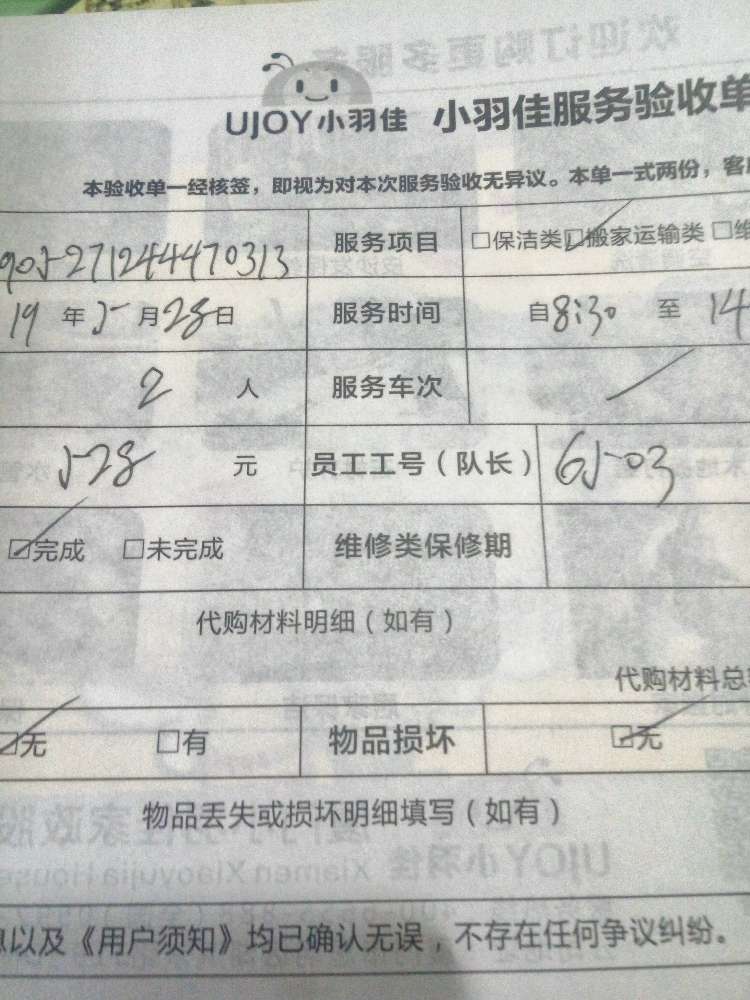 UJOY小羽佳 小羽佳服务验收单
本验收单一经核签，即视为对本次服务验收无异议。本单一式两份，客
905-271244470313 服务项目 □保洁类☑搬家运输类□维
19年5月28日 服务时间 自8:30 至 14
2 人 服务车次 /
528 元 员工工号（队长） 6503
☑完成 □未完成 维修类保修期
代购材料明细（如有）
代购材料总
☑无 □有 物品损坏 ☑无
物品丢失或损坏明细填写（如有）
以及《用户须知》均已确认无误，不存在任何争议纠纷。